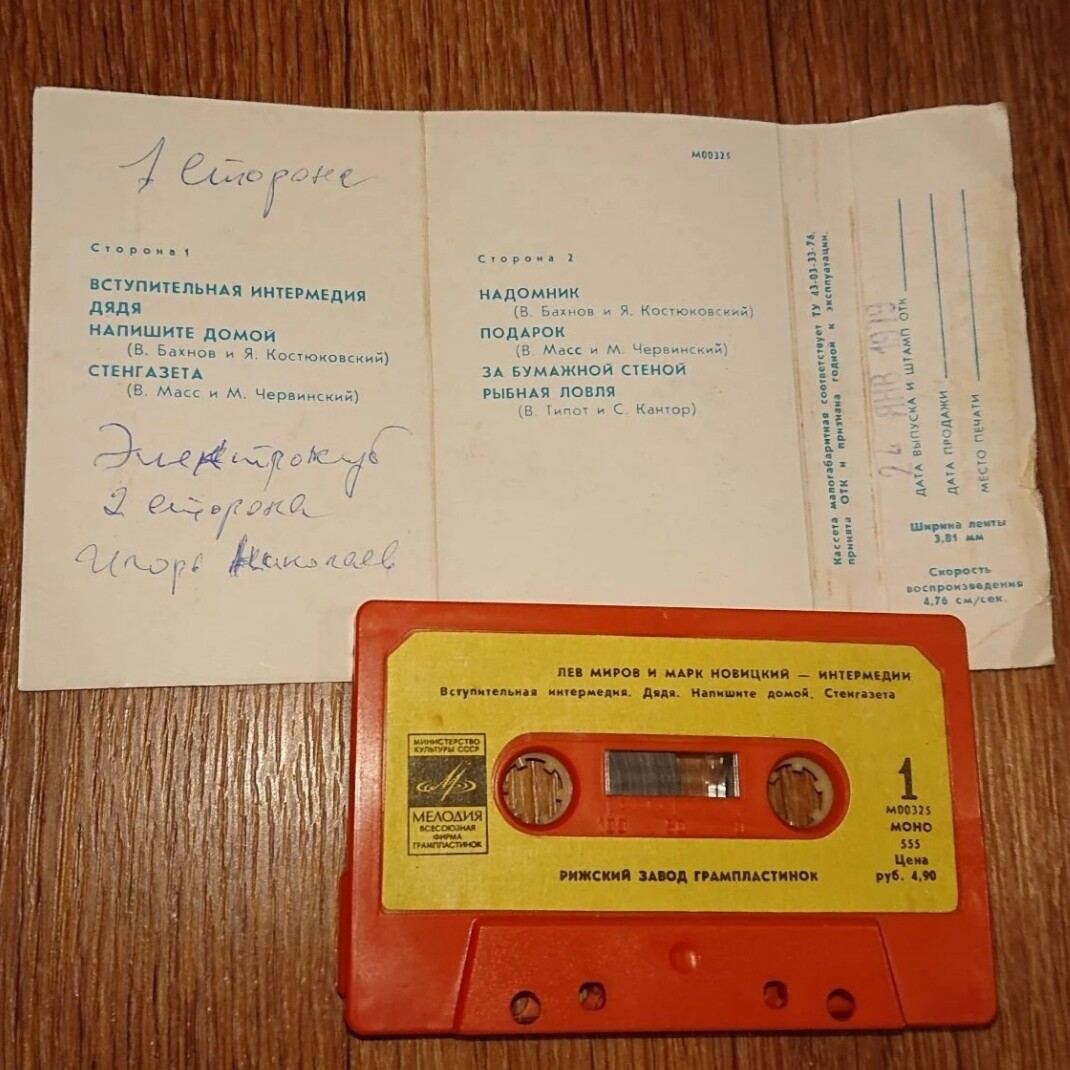 1 сторона
Сторона 1
ВСТУПИТЕЛЬНАЯ ИНТЕРМЕДИЯ
ДЯДЯ
НАПИШИТЕ ДОМОЙ
(В. Бахнов и Я. Костюковский)
СТЕНГАЗЕТА
(В. Масс и М. Червинский)
Электроклуб
2 сторона
Игорь Николаев
М00325
Сторона 2
НАДОМНИК
(В. Бахнов и Я. Костюковский)
ПОДАРОК
(В. Масс и М. Червинский)
ЗА БУМАЖНОЙ СТЕНОЙ
РЫБНАЯ ЛОВЛЯ
(В. Типот и С. Кантор)
Кассета малогабаритная соответствует ТУ 43-03-33-76,
принята ОТК и признана годной к эксплуатации.
24 ЯНВ 1979
ДАТА ВЫПУСКА И ШТАМП ОТК
ДАТА ПРОДАЖИ
МЕСТО ПЕЧАТИ
Ширина ленты
3,81 мм
Скорость
воспроизведения
4,76 см/сек.
ЛЕВ МИРОВ И МАРК НОВИЦКИЙ — ИНТЕРМЕДИИ
Вступительная интермедия. Дядя. Напишите домой. Стенгазета
МИНИСТЕРСТВО
КУЛЬТУРЫ СССР
МЕЛОДИЯ
ВСЕСОЮЗНАЯ
ФИРМА
ГРАМПЛАСТИНОК
1
М00325
МОНО
555
Цена
руб. 4,90
РИЖСКИЙ ЗАВОД ГРАМПЛАСТИНОК